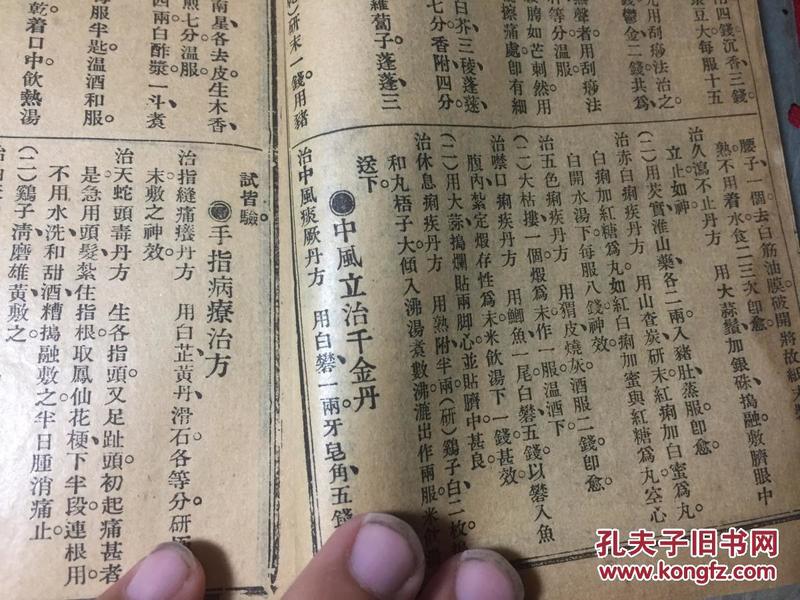 用四錢沉香三錢
菉豆大每服十五
先用刮痧法治之
鬱金二錢共爲
無聲者用刮痧法
等分溫服
脹如芒刺然用
擦痛處卽有細
白芥三稜蓬莪
七分香附四分
蘿蔔子蓬蓬三
研末一錢用豬
腰子一個去白筋油膜破開將故紙末
熟不用着水食二三次卽愈
治久瀉不止丹方　用大蒜鬚加銀硃搗融敷臍眼中
立止如神
(二)用芡實淮山藥各二兩入豬肚蒸服卽愈
治赤白痢疾丹方　用山查炭研末紅痢加白蜜爲丸
白痢加紅糖爲丸如紅白痢加蜜與紅糖爲丸空心
白開水湯下每服八錢神效
治五色痢疾丹方　用猬皮燒灰酒服二錢卽愈
(二)大栝摟一個煅爲末作一服溫酒下
治噤口痢疾丹方　用鯽魚一尾白礬五錢以礬入魚
腹內紮定煅存性爲末米飮湯下一錢甚效
(二)用大蒜搗爛貼兩脚心並貼臍中甚良
治休息痢疾丹方　用熟附半兩(研)鷄子白二枚
和丸梧子大傾入沸湯煮數沸漉出作兩服米飮
送下
中風立治千金丹
治中風痰厥丹方　用白礬一兩牙皂角五錢
南星各去皮生木香
煎七分溫服
四兩白酢漿一斗煮
每服半匙溫酒和服
乾着口中飮熱湯
試皆驗
手指病療治方
治指縫痛癢丹方　用白芷黃丹滑石各等分研
末敷之神效
治天蛇頭毒丹方　生各指頭又足趾頭初起痛甚者
是急用頭髮紮住指根取鳳仙花梗下半段連根用
不用水洗和甜酒糟搗融敷之半日腫消痛止
(二)鷄子淸磨雄黃敷之
孔夫子旧书网
www.kongfz.com